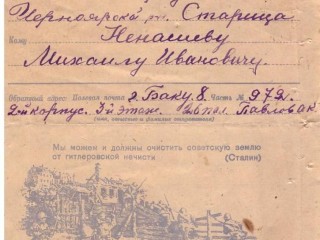 Черноярска Старица
Кому Ненашеву
Михаилу Ивановичу.
Обратный адрес: Полевая почта г. Баку. 8. Часть № 979.
2й корпус. 3й этаж. Павлова К
Мы можем и должны очистить советскую землю
от гитлеровской нечисти (Сталин)